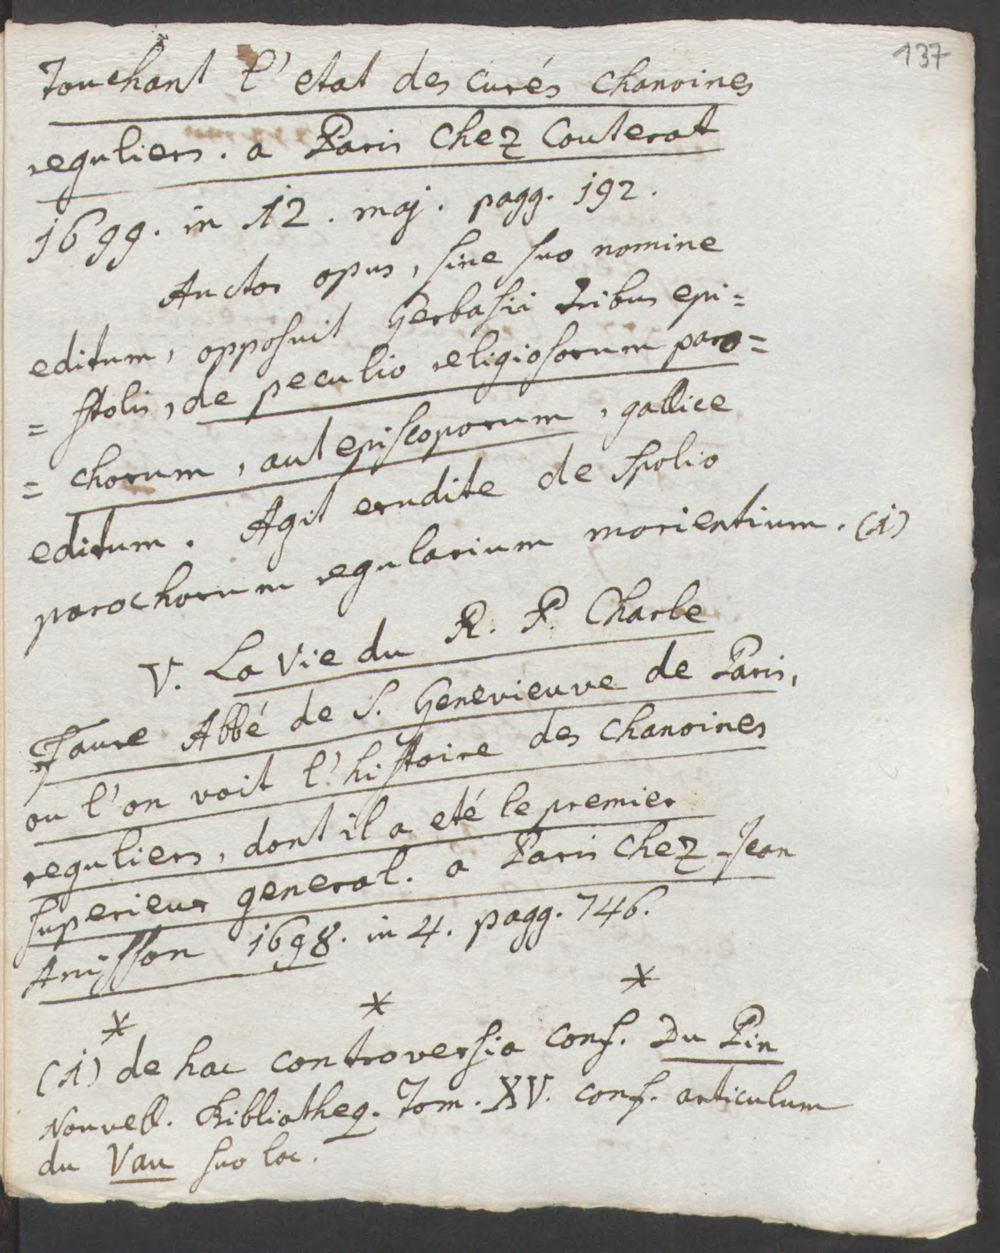 137
Touchant l'etat des curés chanoines
reguliers. a Paris chez Couterot
1699. in 12. maj. pagg. 192.
Auctor opus, sine suo nomine
editum, opposuit Gerbasii tribus epi=
= stolis, de peculio religiosorum paro=
= chorum, aut episcoporum, gallice
editum. Agit erudite de spolio
parochorum regularium morientium. (1)
V. La Vie du R. P. Charle
Faure Abbé de S. Genevieuve de Paris,
ou l'on voit l'histoire des chanoines
reguliers, dont il a eté le premier
superieur general. a Paris chez Jean
Anisson 1698. in 4. pagg. 746.
* * *
(1) de hac controversia conf. Du Pin
Nouvell. Bibliotheq. Tom. XV. conf. articulum
du Vau suo loc.